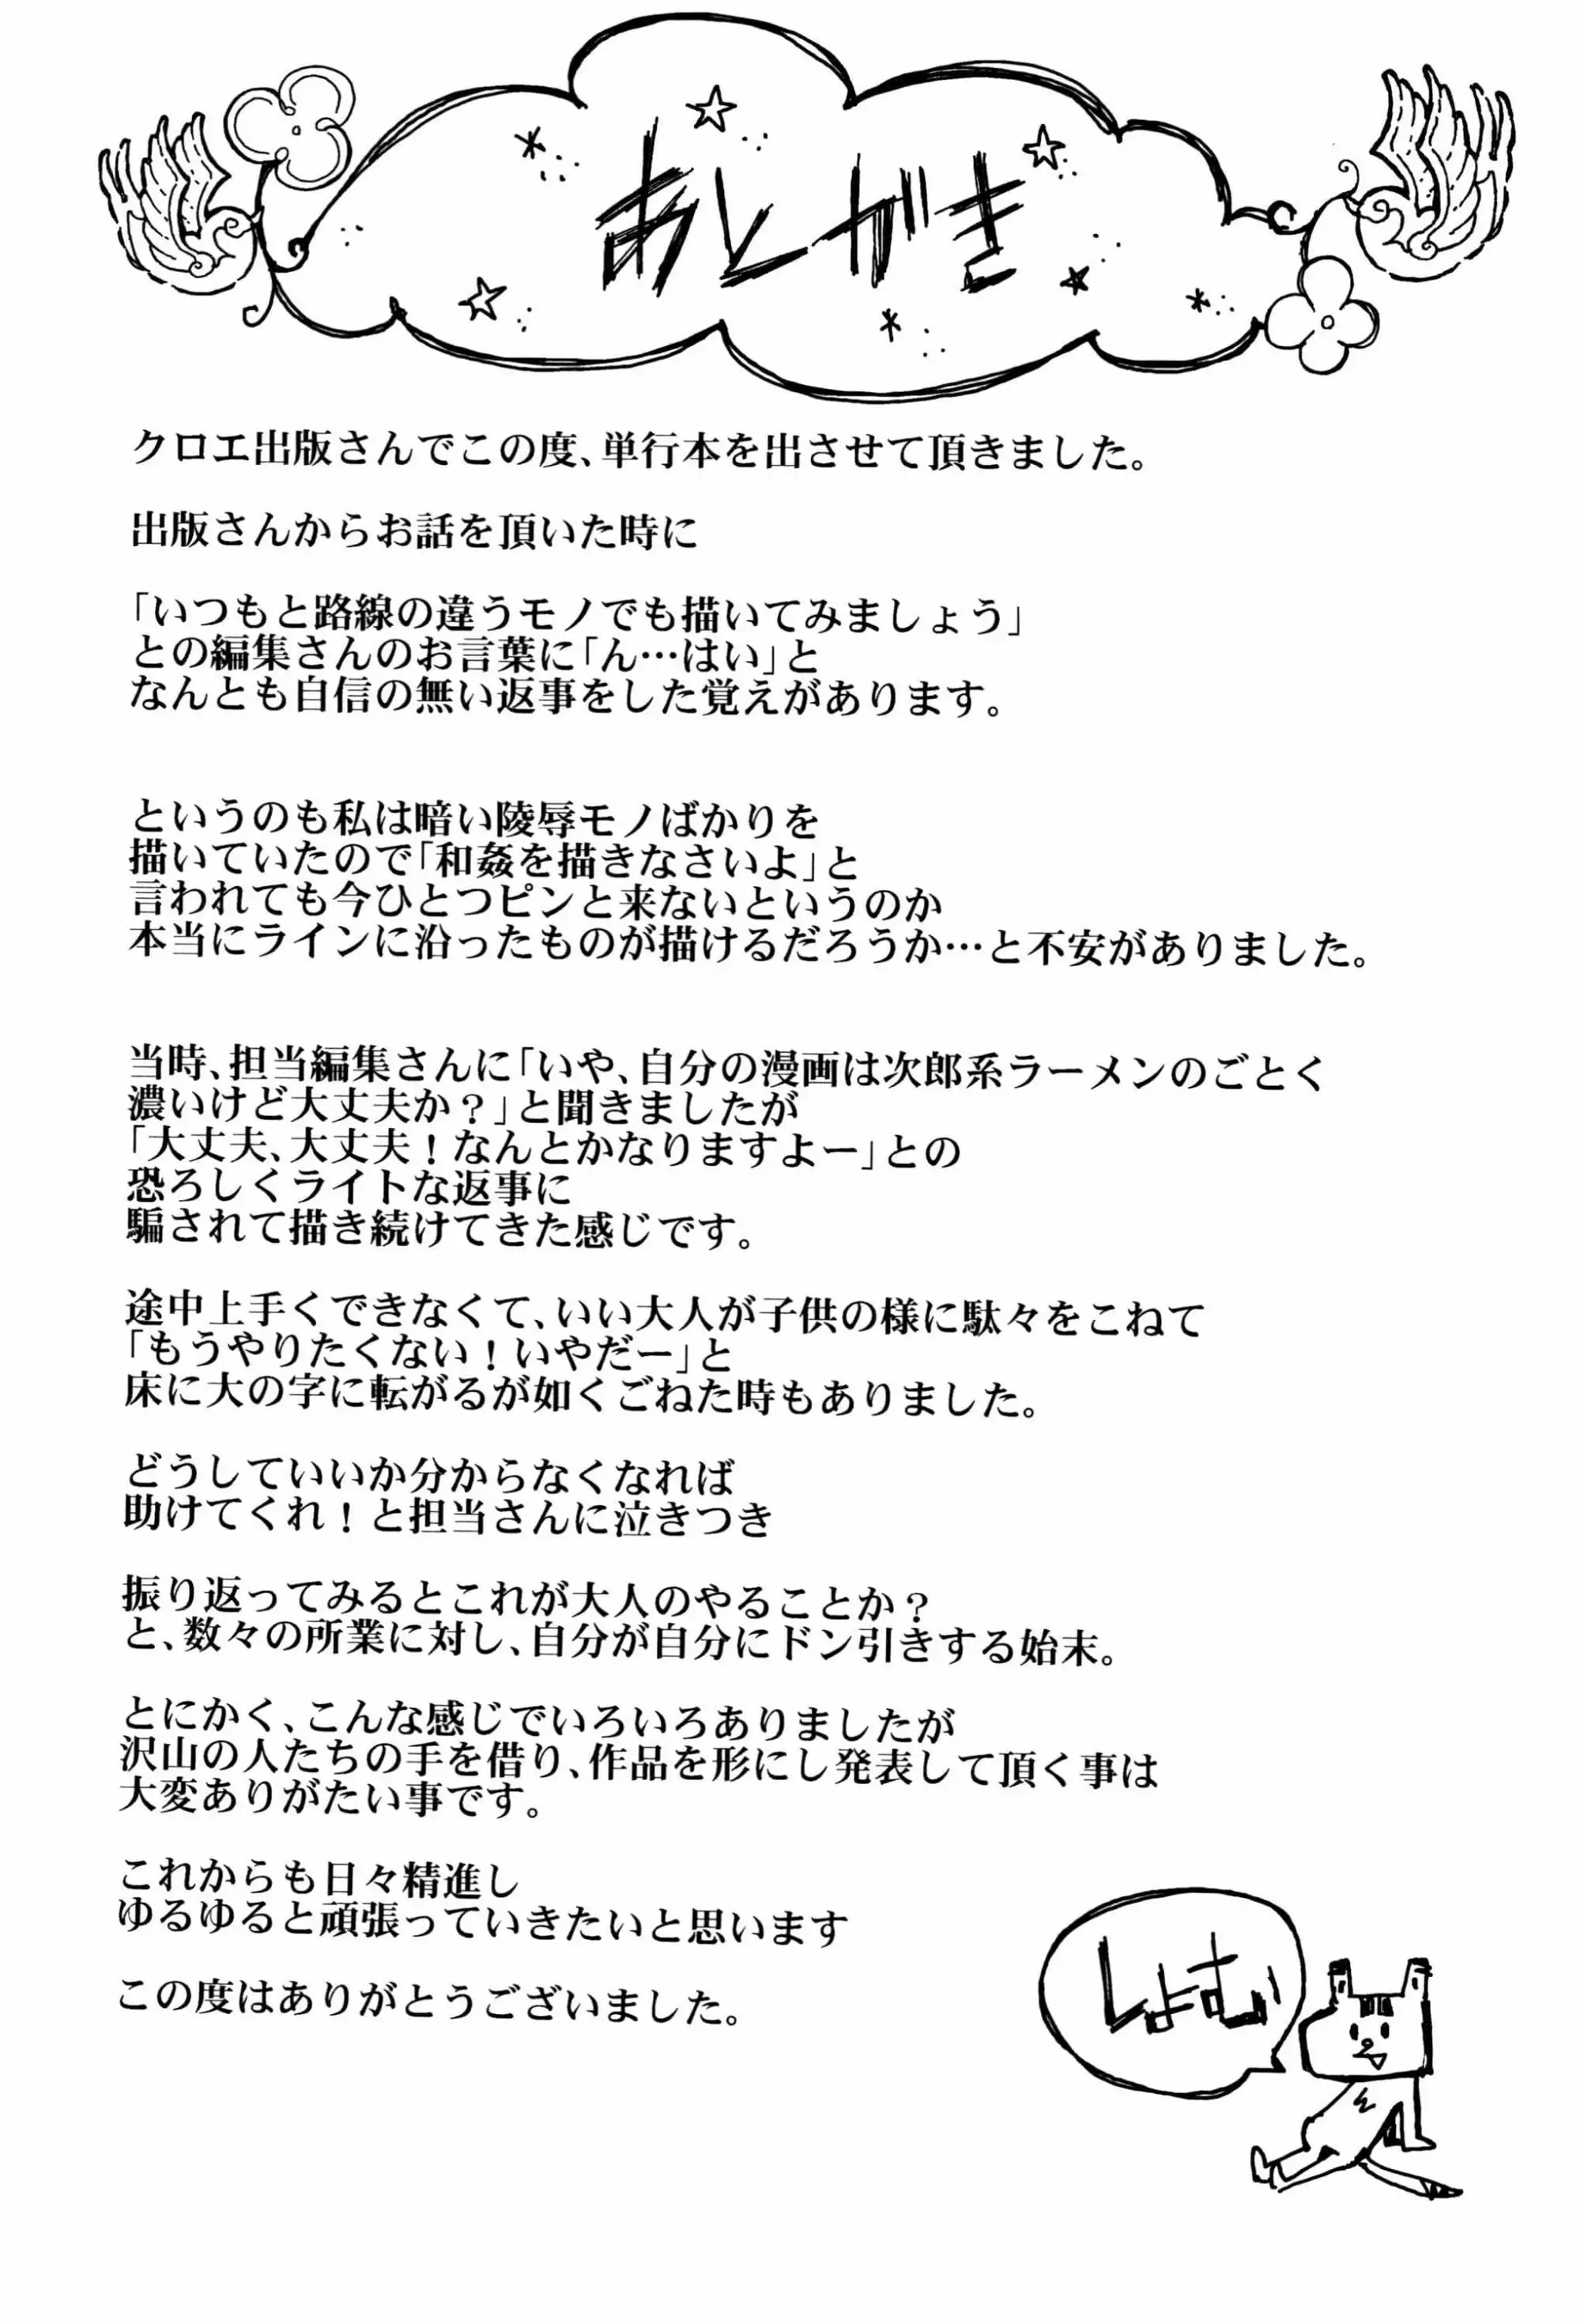 あとがき
クロエ出版さんでこの度、単行本を出させて頂きました。
出版さんからお話を頂いた時に
「いつもと路線の違うモノでも描いてみましょう」
との編集さんのお言葉に「ん…はい」と
なんとも自信の無い返事をした覚えがあります。
というのも私は暗い陵辱モノばかりを
描いていたので「和姦を描きなさいよ」と
言われても今ひとつピンと来ないというのか
本当にラインに沿ったものが描けるだろうか…と不安がありました。
当時、担当編集さんに「いや、自分の漫画は次郎系ラーメンのごとく
濃いけど大丈夫か？」と聞きましたが
「大丈夫、大丈夫！なんとかなりますよー」との
恐ろしくライトな返事に
騙されて描き続けてきた感じです。
途中上手くできなくて、いい大人が子供の様に駄々をこねて
「もうやりたくない！いやだー」と
床に大の字に転がるが如くごねた時もありました。
どうしていいか分からなくなれば
助けてくれ！と担当さんに泣きつき
振り返ってみるとこれが大人のやることか？
と、数々の所業に対し、自分が自分にドン引きする始末。
とにかく、こんな感じでいろいろありましたが
沢山の人たちの手を借り、作品を形にし発表して頂く事は
大変ありがたい事です。
これからも日々精進し
ゆるゆると頑張っていきたいと思います
この度はありがとうございました。
しょむ